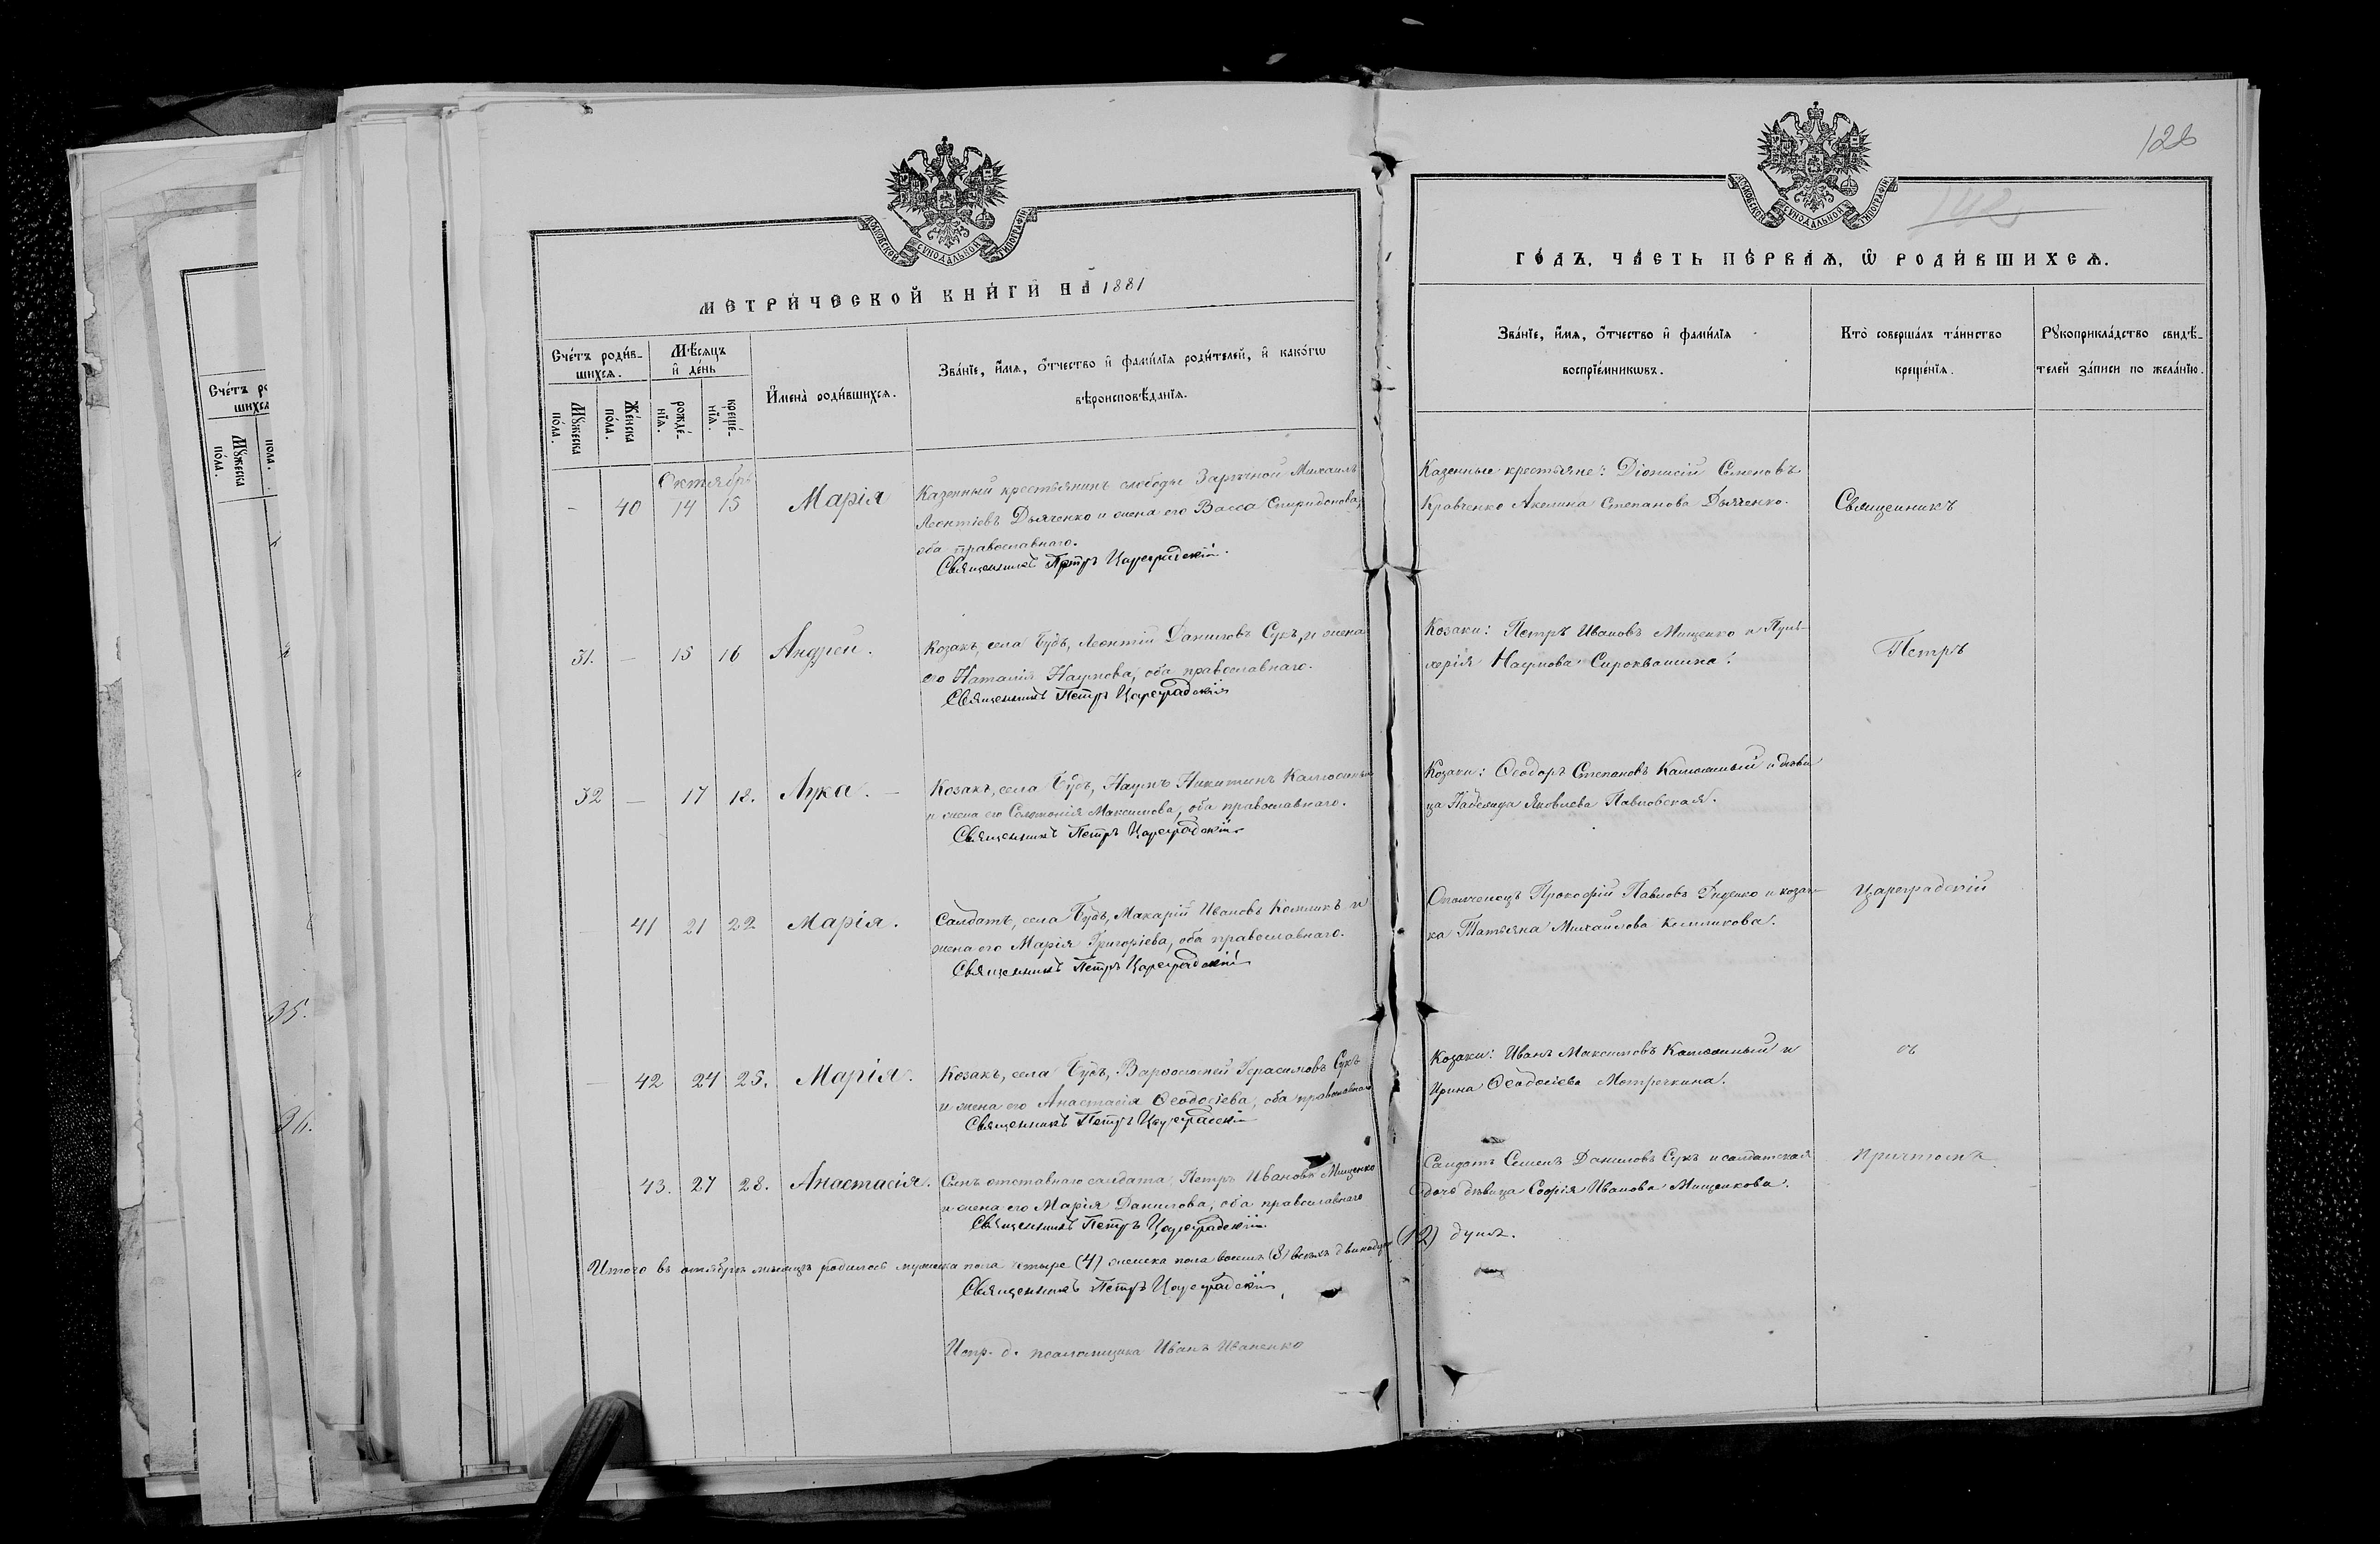 128
142
МОСКОВСКОЙ СУНОДАЛЬНОЙ ТИПОГРАФІИ
МОСКОВСКОЙ СУНОДАЛЬНОЙ ТИПОГРАФІИ
МЕТРИ́ЧЕСКОЙ КНИ́ГИ НА 1881
ГО́ДЪ, ЧА́СТЬ ПЕ́РВАѦ, Ѽ РОДИ́ВШИХСѦ.
Сче́тъ роди́в-
шихсѧ.
Мѣ́сѧцъ
и҆ де́нь
И҆мена̀ роди́вшихсѧ.
Зва́нїе, и҆́мѧ, ѻ҆́тчество и҆ фамѝлїѧ роди́телей, и҆ како́гѡ
вѣроисповѣ́данїѧ.
Мꙋ́жеска
по́ла.
Же́нска
по́ла.
рожде́-
нїѧ.
креще́-
нїѧ.
Зва́нїе, и҆́мѧ, ѻ҆́тчество и҆ фамѝлїѧ
воспрїе́мникѡвъ.
Кто̀ соверша́лъ та́инство
креще́нїѧ.
Рꙋкоприкла́дство свидѣ́-
телей за́писи по жела́нїю.
Сче́тъ ро
шихсѧ
Мꙋ́жеска
по́ла.
пола.
35.
36.
Октябрь
- 40 14 15 Марія
Казенный крестьянинъ слободы Заричной Михаилъ
Леонтіевъ Дьяченко и жена его Васса Спиридонова,
оба православнаго.
Священникъ Петръ Цареградскій.
Казенные крестьяне: Діонисій Семеновъ
Кравченко Акелина Степанова Дьяченко.
Священникъ
31. - 15 16 Андрей.
Козакъ, села Будъ, Леонтій Даниловъ Сукъ, и жена
его Наталія Наумова, оба православнаго.
Священникъ Петръ Цареградскій
Козаки: Петръ Ивановъ Мищенко и Пуль-
херія Наумова Сироквашина.
Петръ
32 - 17 18. Лука. -
Козакъ, села Будъ, Наумъ Никитинъ
и жена его Соломонія Максимова, оба православнаго.
Священникъ Петръ Цареградскій
Козаки: Ѳеодоръ Степановъ и дѣви
ца Надежда Яковлева Павловская.
41 21 22 Марія.
Салдатъ, села Будъ, Макарій Ивановъ и
жена его Марія Григоріева, оба православнаго.
Священникъ Петръ Цареградскій
Ополченецъ Прокофій Павловъ и козач-
ка Татьяна Михайлова
Цареградскій
42 24 25. Марія.
Козакъ, села Будъ, Варѳоломей Герасимовъ Сукъ
и жена его Анастасія Ѳеодосіева, оба православнаго
Священникъ Петръ Цареградскій
Козаки: Иванъ Максимовъ и
Ирина Ѳеодосіева Мотречкина.
съ
43. 27 28. Анастасія.
Сынъ отставнаго салдата, Петръ Ивановъ Мищенко
и жена его Марія Данилова, оба православнаго
Священникъ Петръ Цареградскій
Салдатъ Семенъ Даниловъ Сукъ и салдатская
дочь дѣвица Софія Иванова Мищенкова.
причтомъ
Итого въ октябрѣ мѣсяцѣ родилось мужеска пола четыре (4) женска пола восемь (8) всѣхъ двинадцать (12) душъ.
Священникъ Петръ Цареградскій
Испр. д. псаломщика Иванъ Иваненко